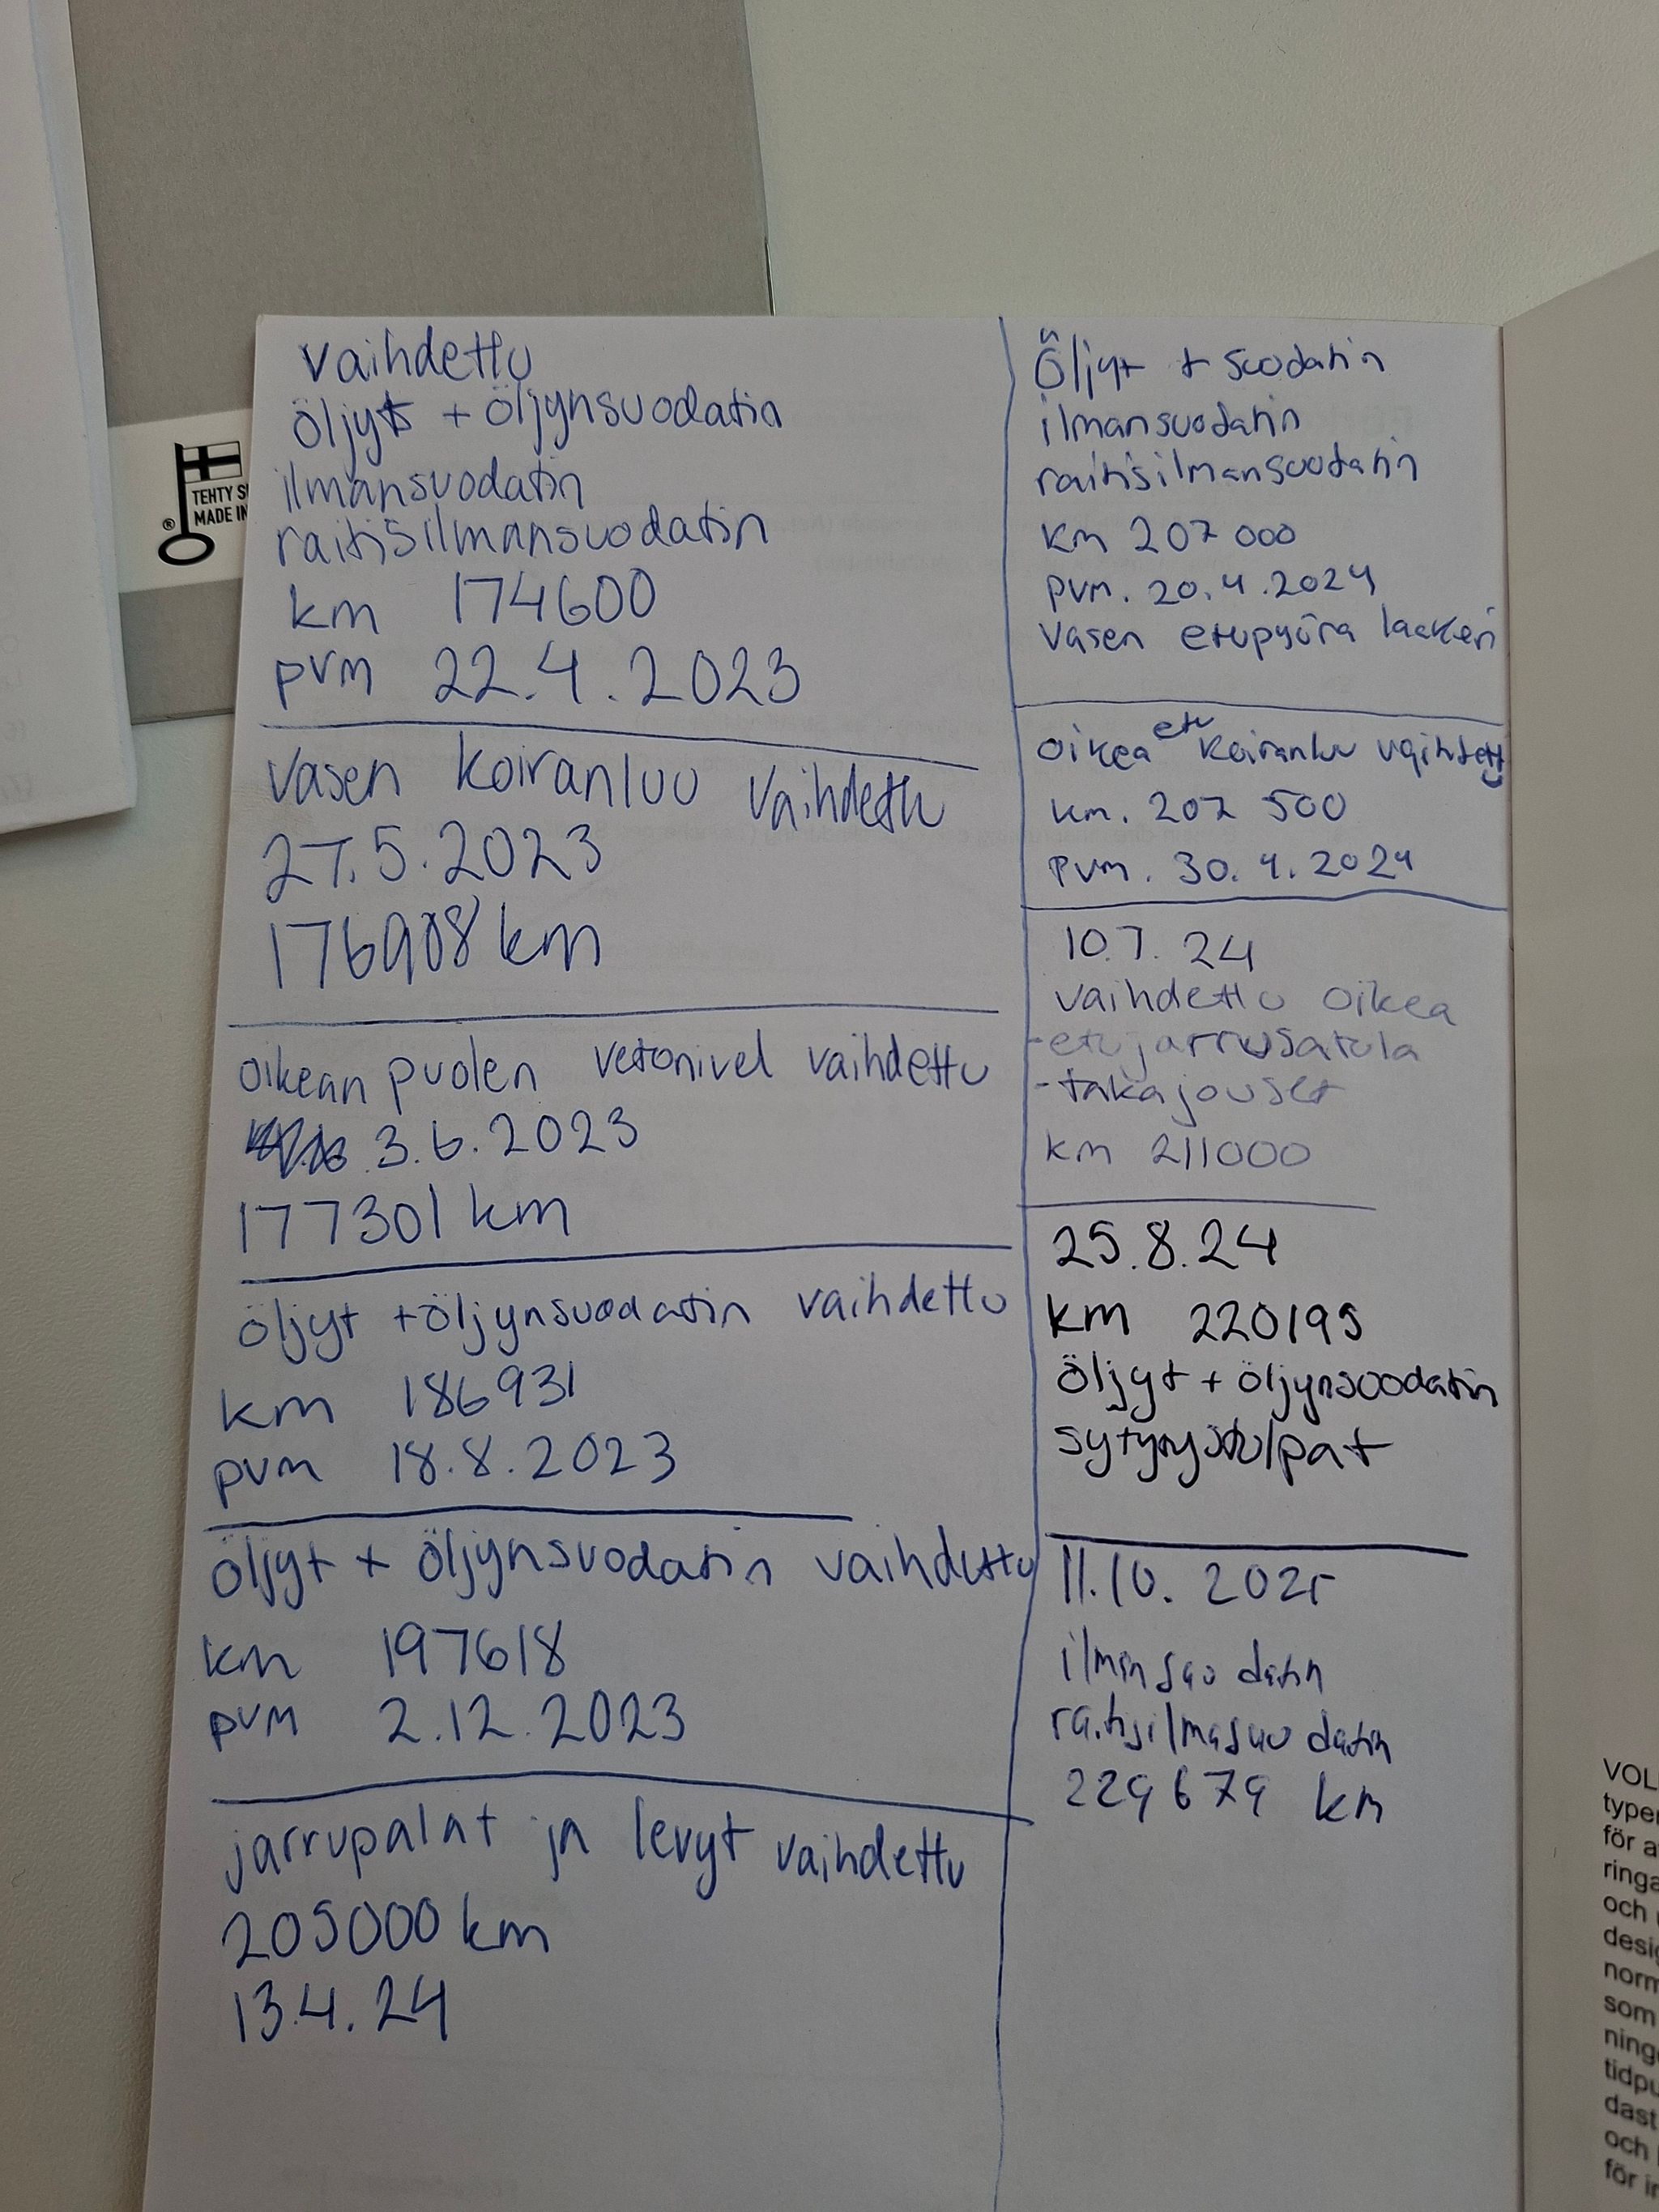 vaihdettu
öljyt + öljynsuodatin
ilmansuodatin
raitisilmansuodatin
km 174600
pvm 22.4.2023
vasen koiranluu vaihdettu
27.5.2023
176908 km
oikean puolen vetonivel vaihdettu
3.6.2023
177301 km
öljyt +öljynsuodatin vaihdettu
km 186931
pvm 18.8.2023
öljyt + öljynsuodatin vaihdettu
km 197618
pvm 2.12.2023
jarrupalat ja levyt vaihdettu
205000 km
13.4.24
Öljyt + suodatin
ilmansuodatin
raitisilmansuodatin
km 207 000
pvm. 20.4.2024
vasen etupyöra laakeri
oikea etu koiranluu vaihdettu
km. 207 500
pvm. 30.4.2024
10.7.24
vaihdettu oikea
-etujarrusatula
-takajouset
km 211000
25.8.24
km 220195
Öljyt + öljynsuodatin
sytytystulpat
11.10.2025
ilmansuodatin
raitisilmasuodatin
229679 km
® TEHTY S
MADE IN
VOL
type
för a
ringa
och
desig
norm
som
ning
tidpu
dast
och
för in